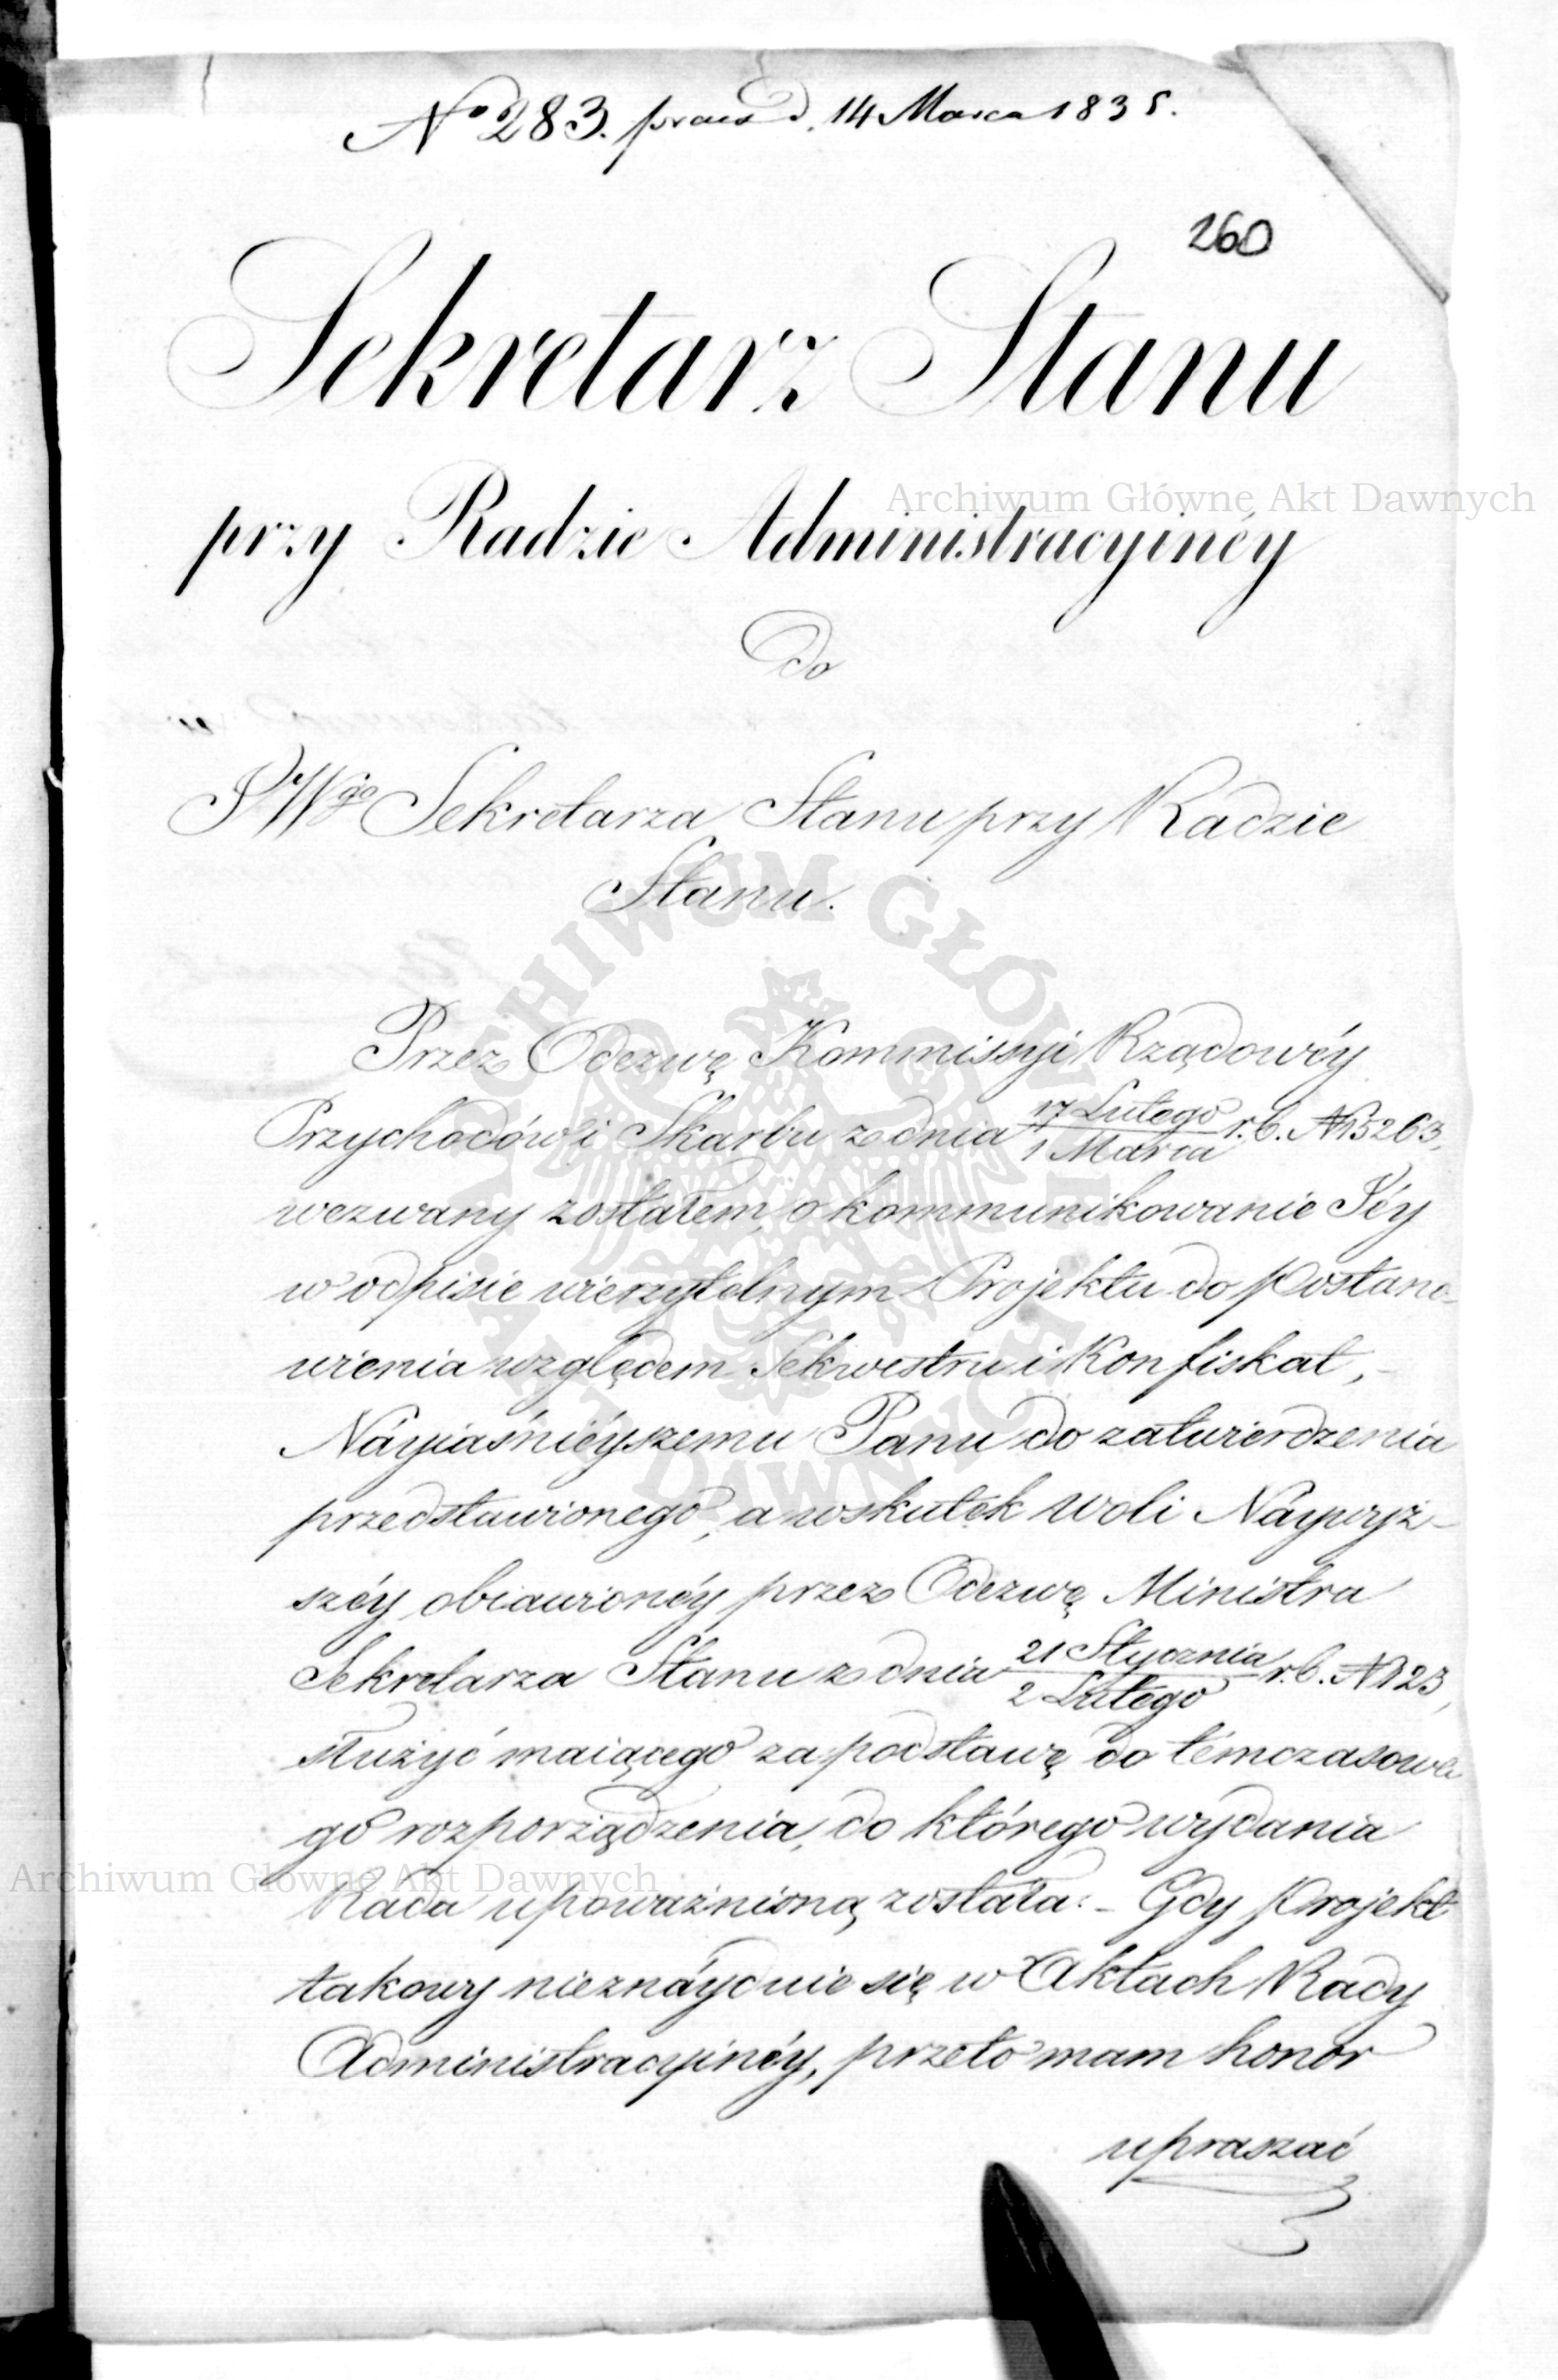 No 283. praes d. 14 Marca 1835.
260
Sekretarz Stanu
przy Radzie Administracyinéy
Do
JWgo Sekretarza Stanu przy Radzie
Stanu.
Przez Odezwę Kommissyi Rządowéy
Przychodów i Skarbu z dnia 17 Lutego / 1 Marca r. b. N 15263,
wezwany zostałem, o kommunikowanie Jéy
w odpisie wierzytelnym Projektu do Postano-
wienia względem Sekwestru i Konfiskat, -
Náyiaśniéyszemu Panu do zatwierdzenia
przedstawionego, a wskutek woli Náywyż-
széy obiawionéy przez Odezwę Ministra
Sekretarza Stanu z dnia 21 Stycznia / 2 Lutego r. b. N 123,
służyć maiącego za podstawę do témczasowe
go rozporządzenia, do którego wydania
Rada upoważnioną została: - Gdy Projekt
takowy nieznáyduie się w Aktach Rady
Administracyinéy, przeto mam honor
upraszać
Archiwum Główne Akt Dawnych
ARCHIWUM GŁÓWNE AKT DAWNYCH
Archiwum Główne Akt Dawnych